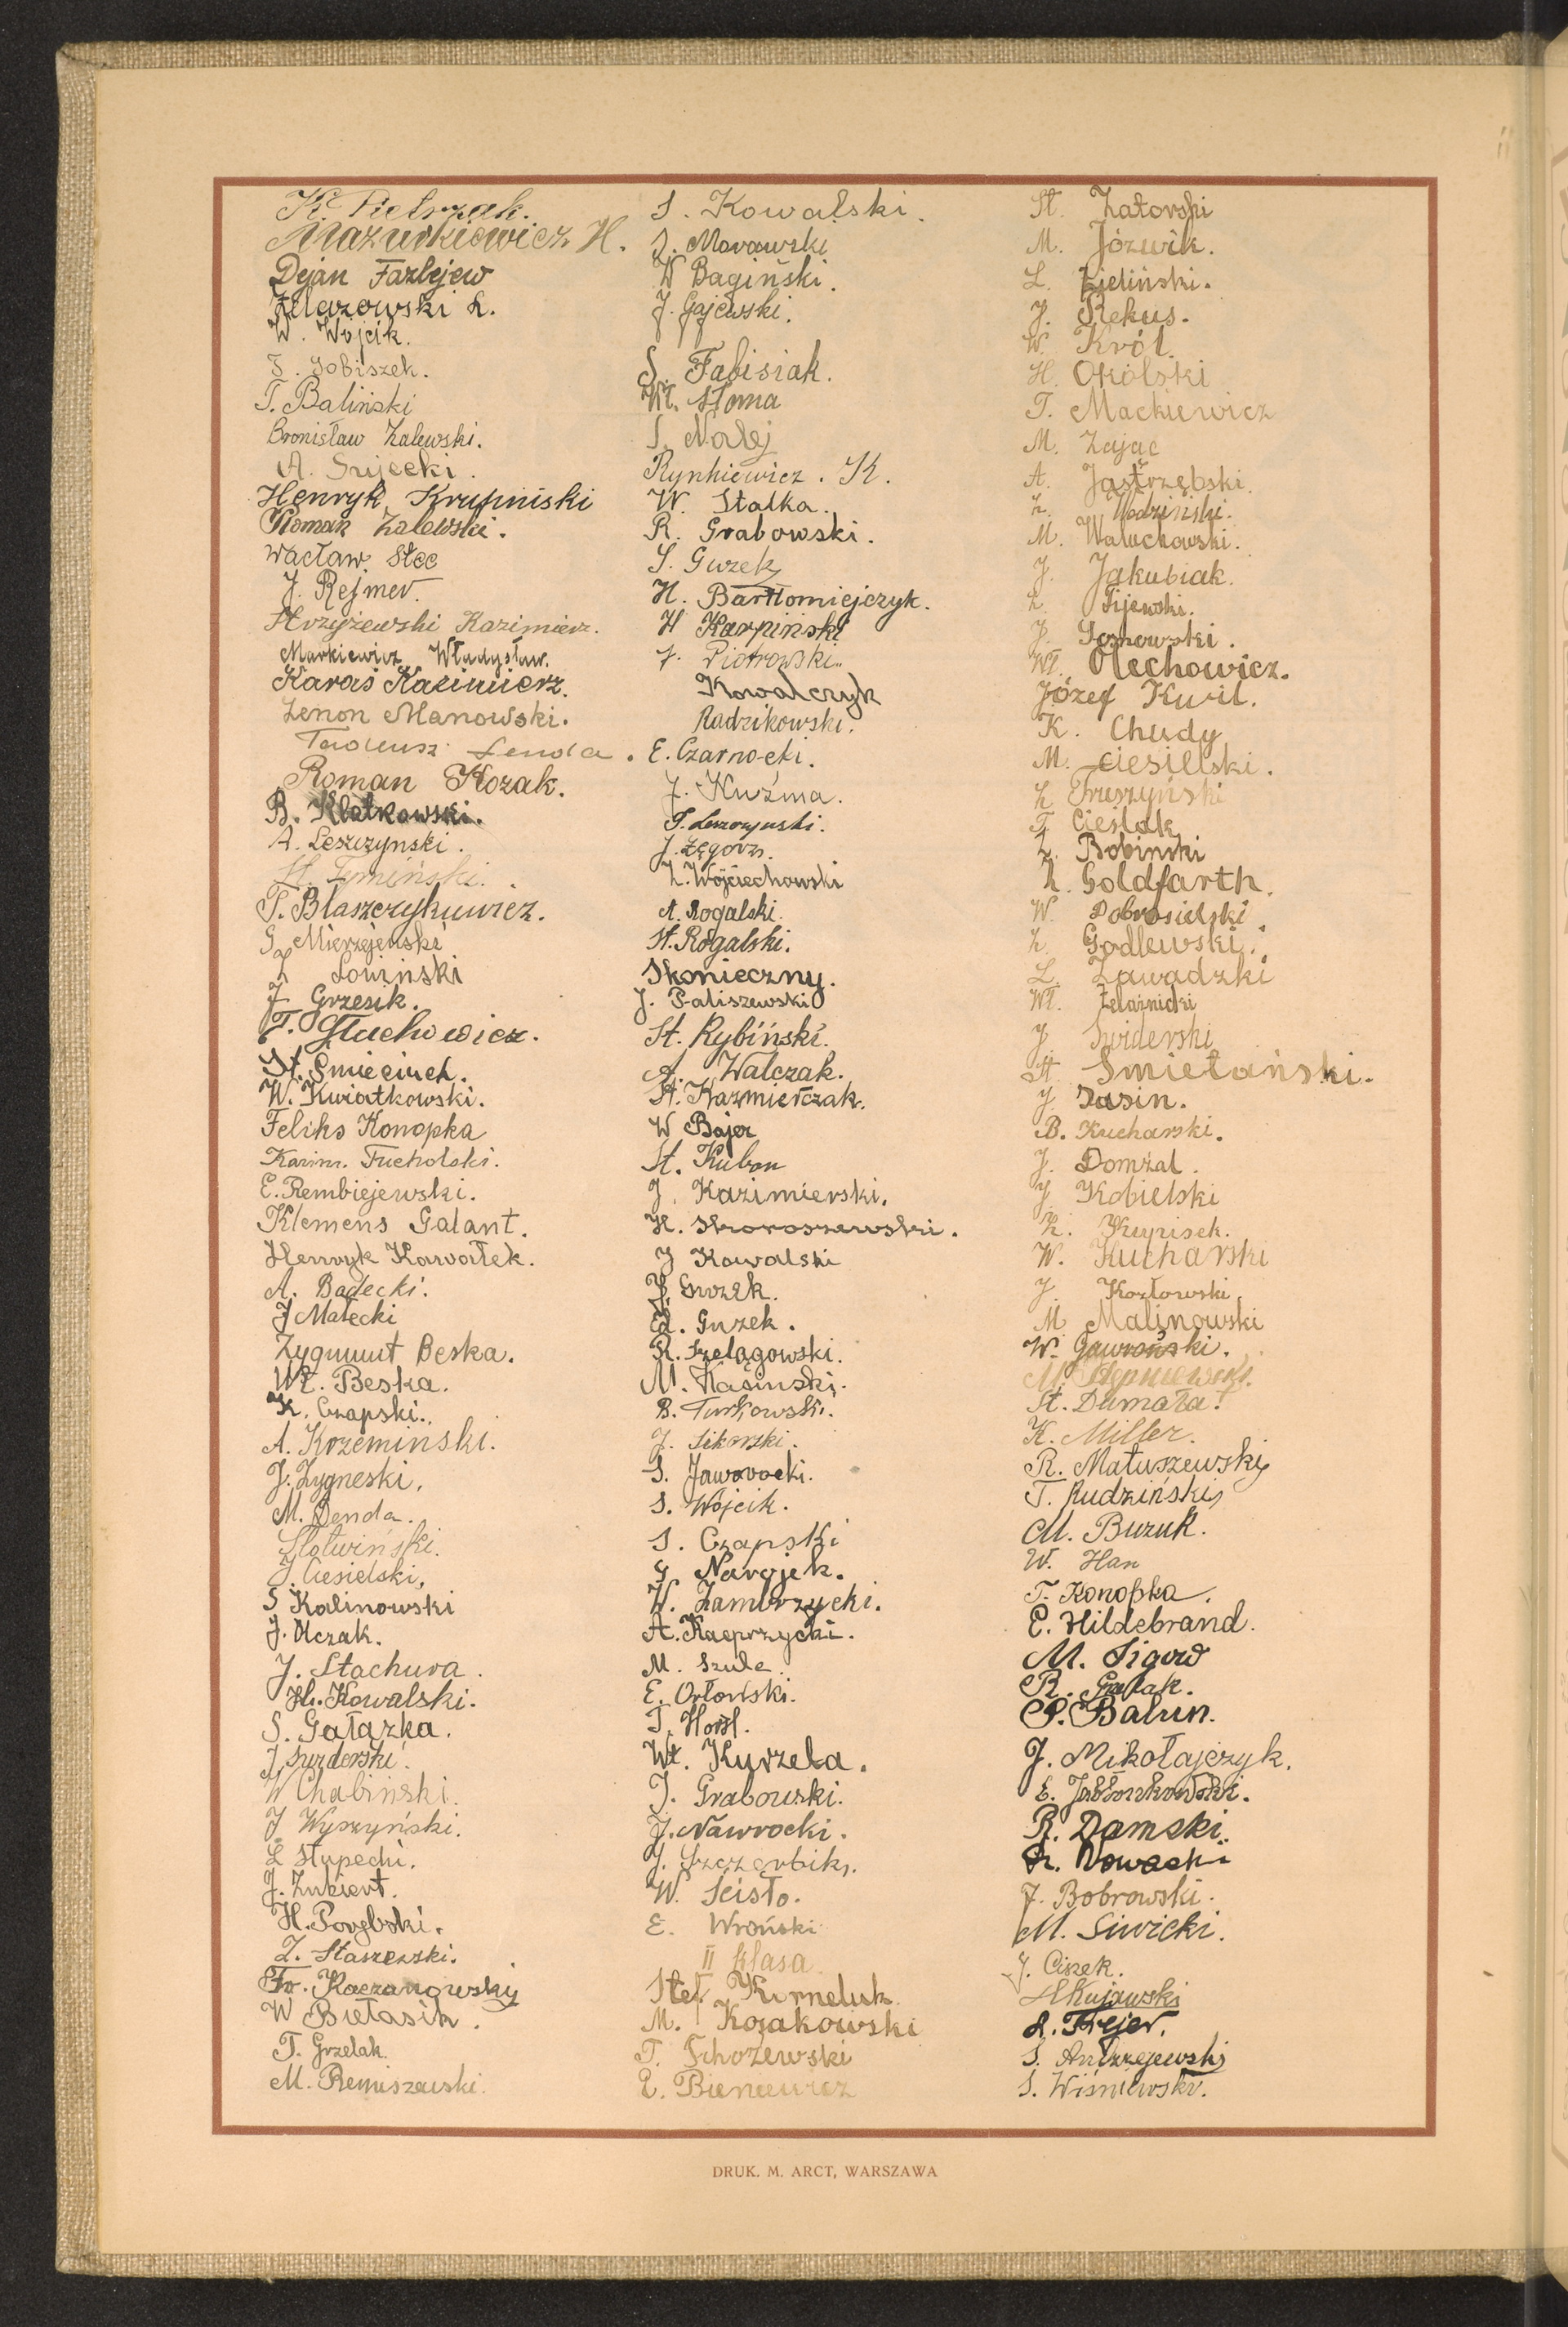 K. Pietrzak.
Mazurkiewicz H.
Dejan Fazlejew
Żelazowski L.
W. Wójcik.
S. Sobiszek.
T. Baliński
Bronisław Zalewski.
A.
Henryk Krupiński
Roman Zalewski.
Wacław Stec
J. Rejmer.
Strzyżewski Kazimierz.
Markiewicz Władysław.
Karaś Kazimierz.
Zenon Manowski.
Tadeusz Lenda.
Roman Kozak.
B. Klatkowski.
A. Leszczynski.
St. Tymiński.
T. Blaszczykiewicz.
G. Mierzejewski
Z Lowiński
J Grzesik.
T. Stachowicz.
St. Śmieciuch.
W. Kwiatkowski.
Feliks Konopka
Kazim. Tucholski.
E. Rembiejewski.
Klemens Galant.
Henryk Kawałek.
A. Badecki.
J Małecki
Zygmunt Beska.
Wł. Beska.
K. Czapski.
A. Krzeminski.
J. Zygneski.
M. Denda.
Słotwiński.
J. Ciesielski,
S Kalinowski
J. Olczak.
J. Stachura.
H. Kowalski.
S. Gałazka.
J.
W Chabiński.
J Wyszyński.
L Słupecki.
J. Zubiert.
H. Porębski.
Z. Staszewski.
Fr. Kaczanowski
W Bietasik.
T. Grzelak.
M. Remiszewski.
S. Kowalski.
J. Morawski
W Bagiński.
J. Gajewski.
S. Fabisiak.
Wł. Słoma
S. Nalej
Rynkiewicz. K.
W. Stalka.
R. Grabowski.
S. Guzek
H. Bartłomiejczyk.
H Karpiński
J. Piotrowski.
Kowalczyk
Radzikowski.
E. Czarnocki.
J. Kuźma.
T. Leszczynski.
J. Zęgorz.
Z. Wojciechowski
A. Rogalski.
St. Rogalski.
Skonieczny.
J. Paliszewski
St. Rybiński.
A. Walczak.
St. Kazmierczak.
W Bajer
St. Kubon
J. Kazimierski.
K. Skoroszewski.
J Kowalski
J. Guzek.
Ed. Guzek.
R. Szelągowski.
M. Kasinski.
B. Turkowski.
J. Sikorski.
S. Jaworocki.
S. Wójcik.
S. Czapski
G Narojek.
W. Zambrzycki.
A. Kacprzycki.
M. Szulc.
E. Orłowski.
T. Horst.
Wł. Kurzela.
J. Grabowski.
J. Nawrocki.
J. Szczerbik.
W. Ścisło.
E. Wroński
II klasa
Stef. Kirneluk
M. Kozakowski
T. Tchożewski
E. Bieniewicz
St. Zatorski
M. Jóźwik.
L. Zieliński.
J. Rekus.
W. Król.
H. Okólski
T. Mackiewicz
M. Zając
A. Jastrzębski.
Z. Młodziński.
M. Waluchowski.
J. Jakubiak.
Z. Fijewski.
J. Sosnowski.
Wł. Olechowicz.
Józef Kwil.
K. Chudy
M. Ciesielski.
Z. Truszyński
T. Cieślak
Z. Bobinski
Z. Goldfarth.
W. Dobrosielski.
Z. Godlewski.
L. Zawadzki
Wł. Żelaźnicki
J. Świderski
St. Śmietański.
J Jasin.
B. Kucharski.
J. Domżal.
J. Kobielski
Z. Krypisek.
W. Kucharski
J. Kozłowski
M Malinowski
W. Gawroński.
M. Stępniewski.
St. Dumała.
K. Miller.
R. Matuszewski
T. Rudziński
M. Buzuk.
W. Han
T. Konopka.
E. Hildebrand.
M. Figow
R. Galak.
P. Balun.
J. Mikołajczyk.
E. Jabłonkowski.
R. Damski.
K. Nowacki
J. Bobrowski.
M. Siwicki.
J. Ciszek.
A Kujawski
L. Frejer.
S. Andrzejewski
S. Wiśniewski.
DRUK. M. ARCT, WARSZAWA